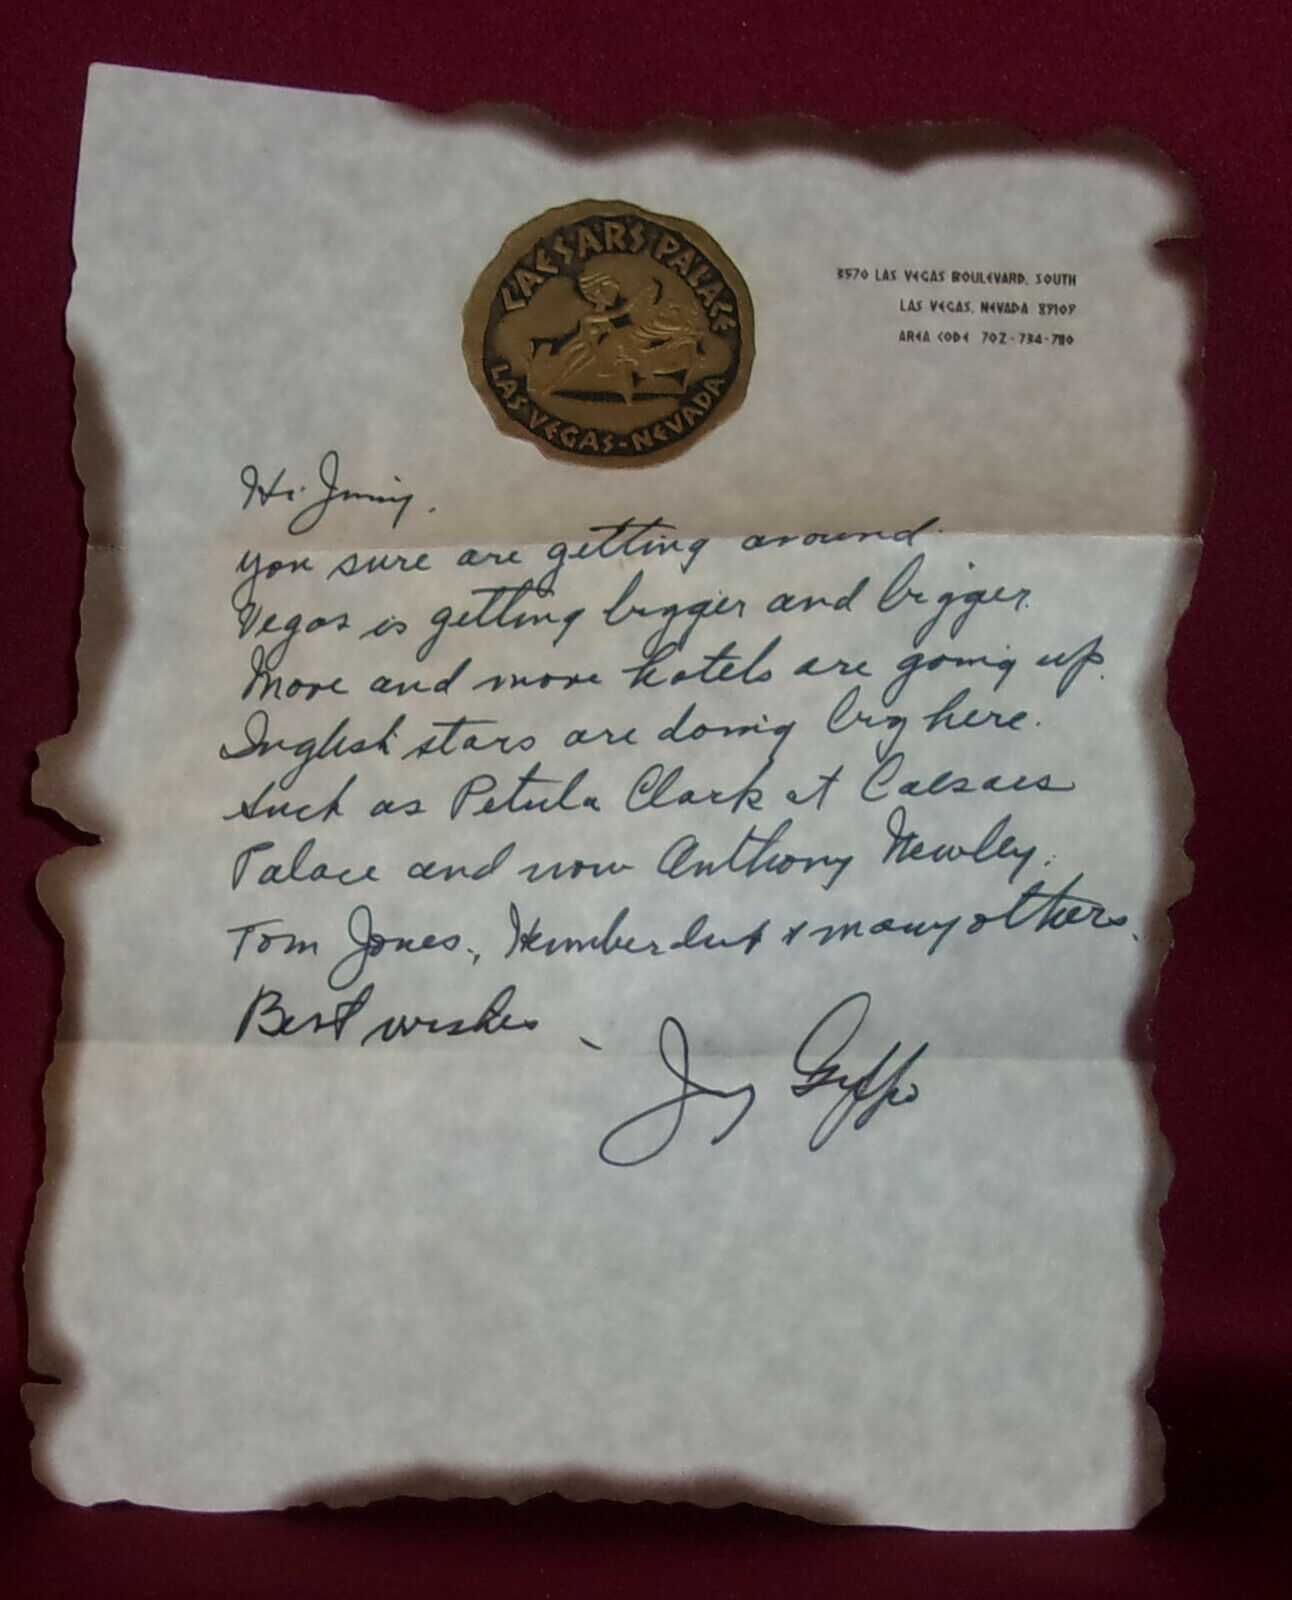 CAESARS PALACE
LAS VEGAS - NEVADA
3570 LAS VEGAS BOULEVARD, SOUTH
LAS VEGAS, NEVADA 89109
AREA CODE 702-734-7110
Hi
you sure are getting around.
Vegas is getting bigger and bigger.
More and more hotels are going up.
Inglish stars are doing big here.
Such as Petula Clark at Caesars
Palace and now Anthony Newley.
Tom Jones, Humberdut & many others.
Best wishes -